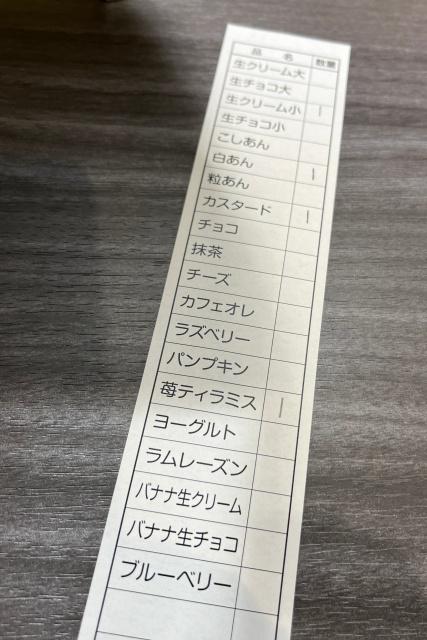 品 名 数量
生クリーム大
生チョコ大
生クリーム小 |
生チョコ小
こしあん
白あん |
粒あん
カスタード |
チョコ
抹茶
チーズ
カフェオレ
ラズベリー
パンプキン
苺ティラミス |
ヨーグルト
ラムレーズン
バナナ生クリーム
バナナ生チョコ
ブルーベリー